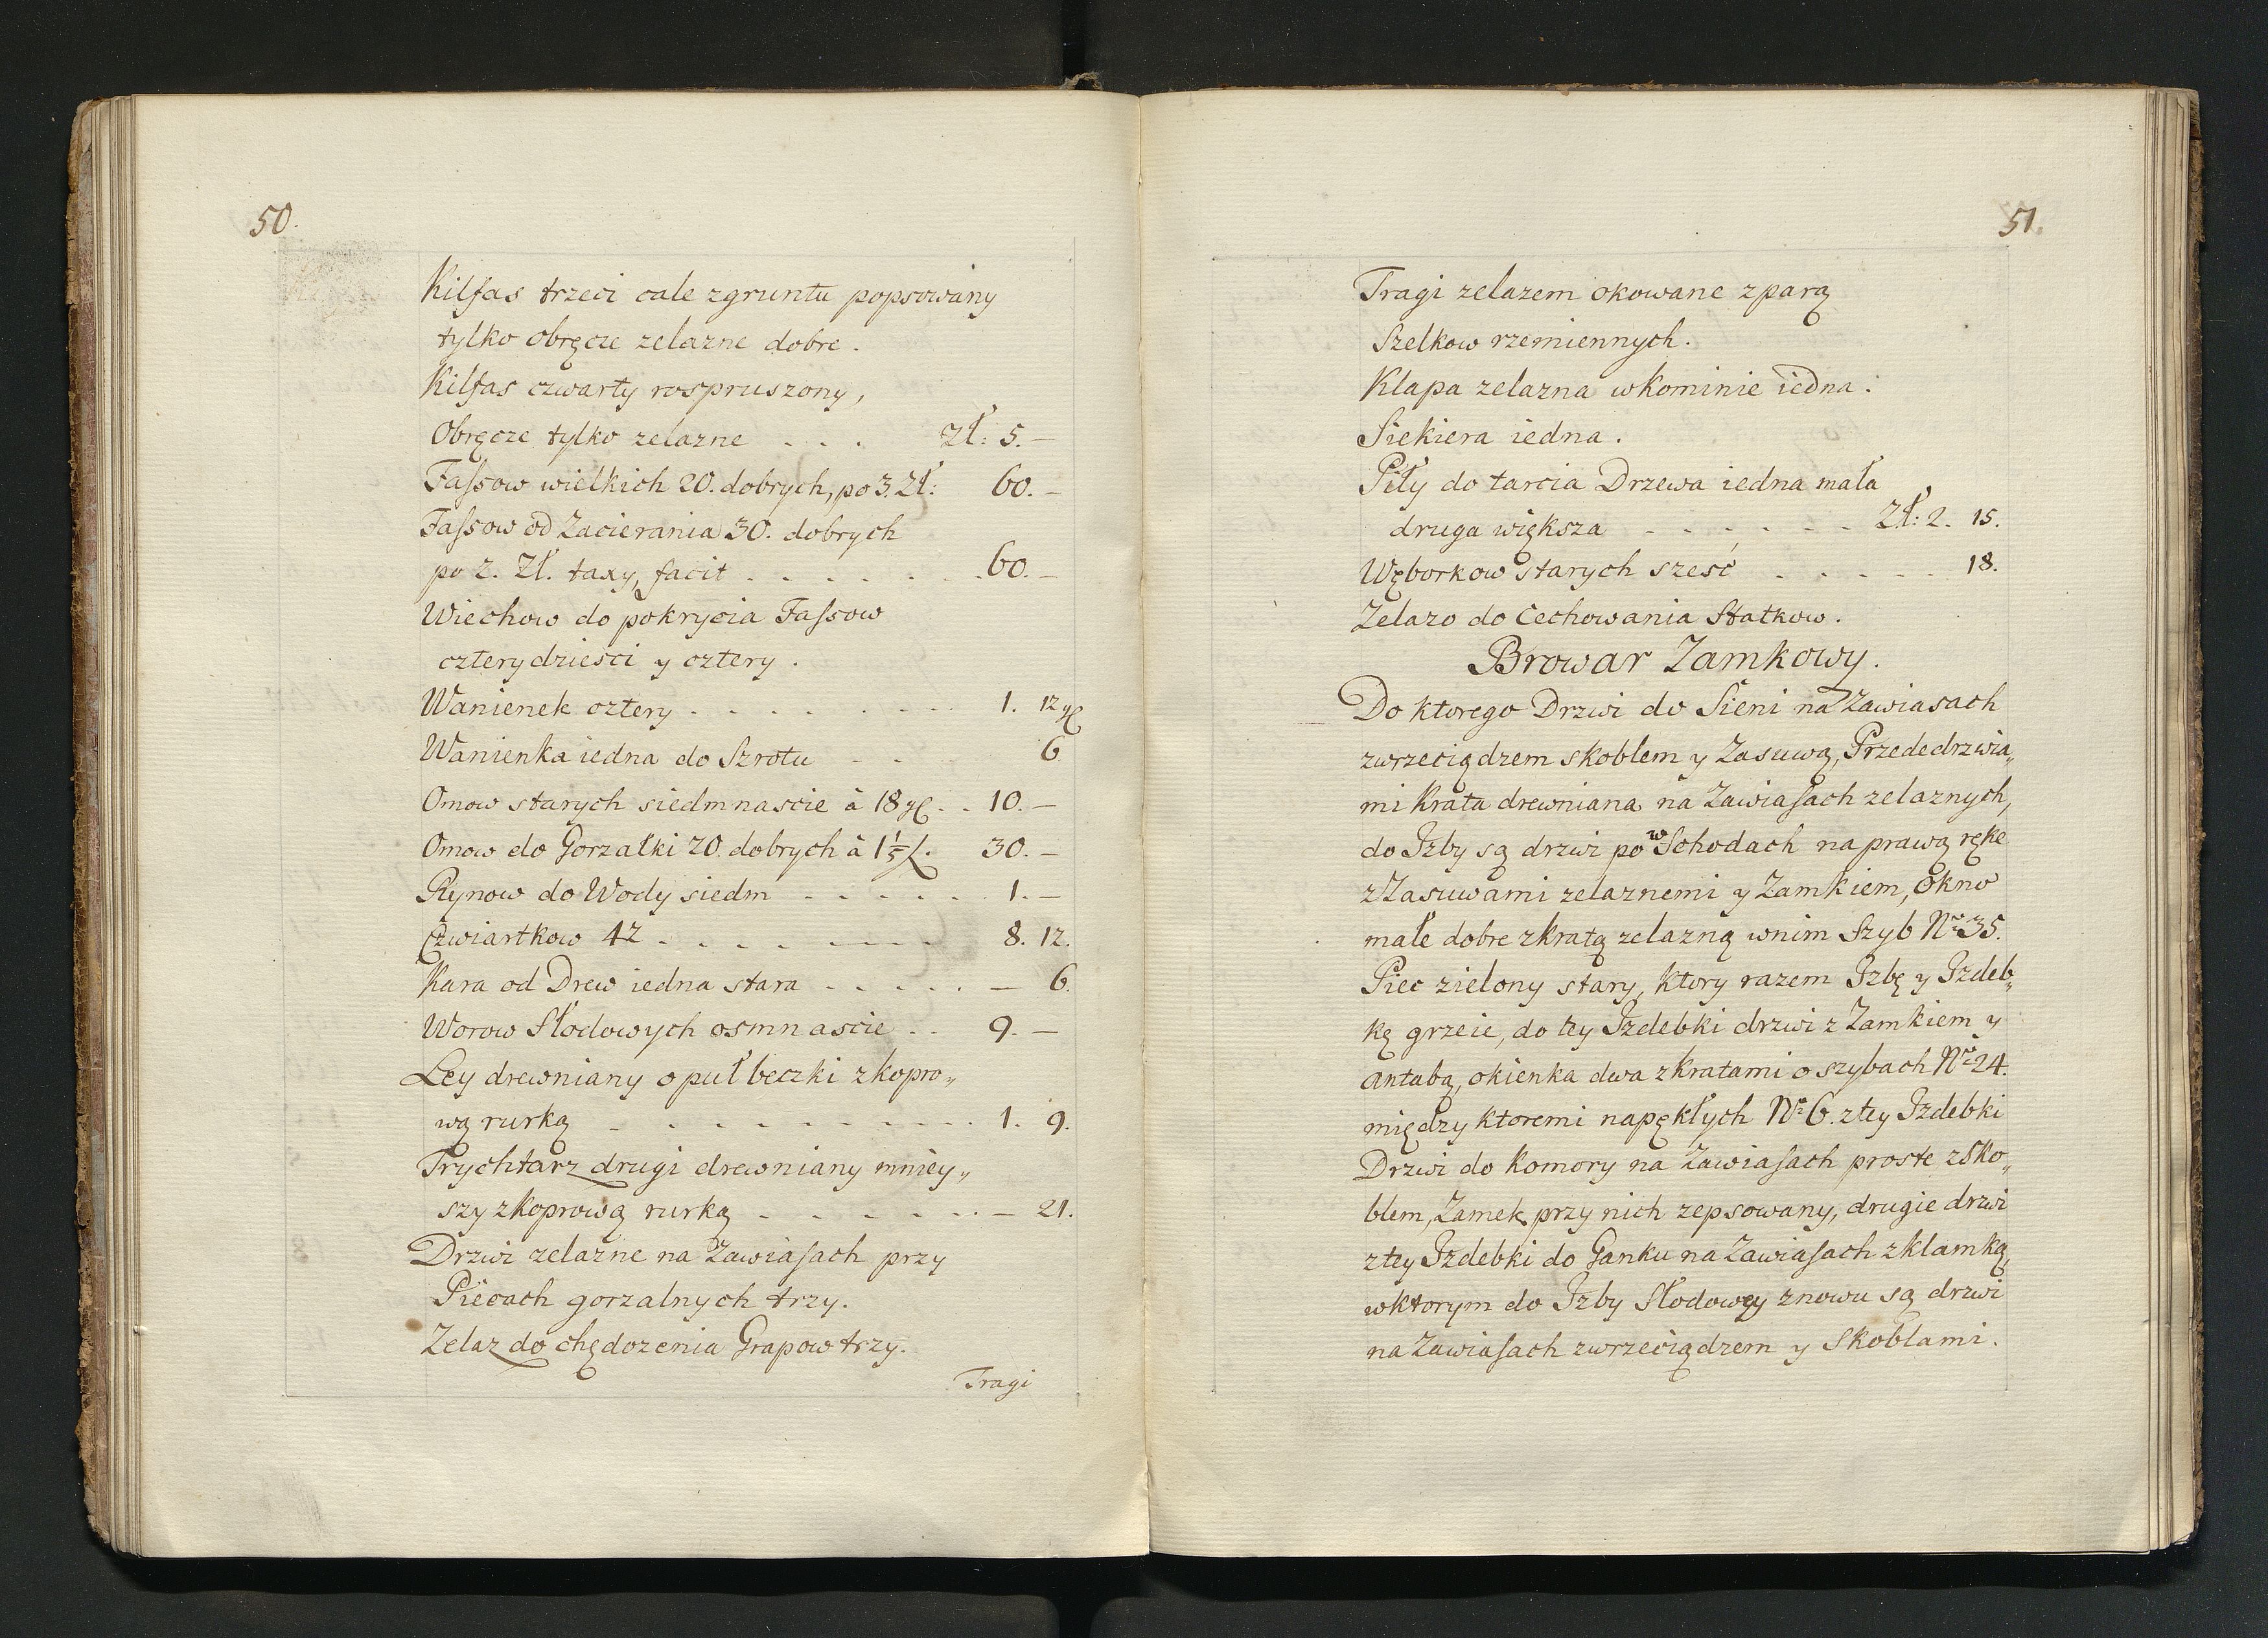 50.
Kilfas trzeci cale zgruntu popsowany
tylko obręcze zelazne dobre.
Kilfas czwarty rospruszony,
Obręcze tylko zelazne . . . Zł: 5. –
Fassow wielkich 20. dobrych, po 3. Zł: 60. –
Fassow od Zacierania 30. dobrych
po 2. Zł. taxy, facit . . . . . . . 60. –
Wiechow do pokrycia Fassow
czterydziesci y cztery.
Wanienek cztery . . . . . . . . . 1. 12 gl
Wanienka iedna do Szrotu . . . 6
Omow starych siedmnascie à 18 gl . . 10. –
Omow do Gorzałki 20. dobrych à 1½ fl. 30. –
Rynow do Wody siedm . . . . . . 1. –
Czwiartkow 42 . . . . . . . . 8. 12.
Kara od Drew iedna stara . . . . . – 6.
Worow Słodowych osmnascie . . 9. –
Ley drewniany o puł beczki zkopro„
wą rurką . . . . . . . . . . 1. 9.
Trychtarz drugi drewniany mniey„
szy zkoprową rurką . . . . . . – 21.
Drzwi zelazne na Zawiasach przy
Piecach gorzalnych trzy.
Zelaz do chędozenia Grapow trzy.
Tragi
51.
Tragi zelazem okowane zparą
Szelkow rzemiennych.
Klapa zelazna wkominie iedna.
Siekiera iedna.
Piły do tarcia Drzewa iedna mała
druga większa . . . . . . Zł: 2. 15.
Węborkow starych sześć . . . . . 18.
Zelazo do Cechowania Statkow.
Browar Zamkowy.
Do ktorego Drzwi do Sieni na Zawiasach
zwrzeciądzem skoblem y Zasuwą, Przededrzwia„
mi Krata drewniana na Zawiasach zelaznych,
do Izby są drzwi po w Schodach na prawą rękę
z Zasuwami zelaznemi y Zamkiem, Okno
małe dobre zkratą zelazną wnim Szyb Nro 35.
Piec zielony stary, ktory razem Izbę y Izdeb„
kę grzeie, do tey Izdebki drzwi z Zamkiem y
antabą, okienka dwa zkratami o szybach Nro 24.
między ktoremi napękłych Nro 6. ztey Izdebki
Drzwi do Komory na Zawiasach proste zsko„
blem, Zamek przy nich zepsowany, drugie drzwi
ztey Izdebki do Ganku na Zawiasach zklamką,
wktorym do Izby Słodowey znowu są drzwi
na Zawiasach zwrzeciądzem y Skoblami.